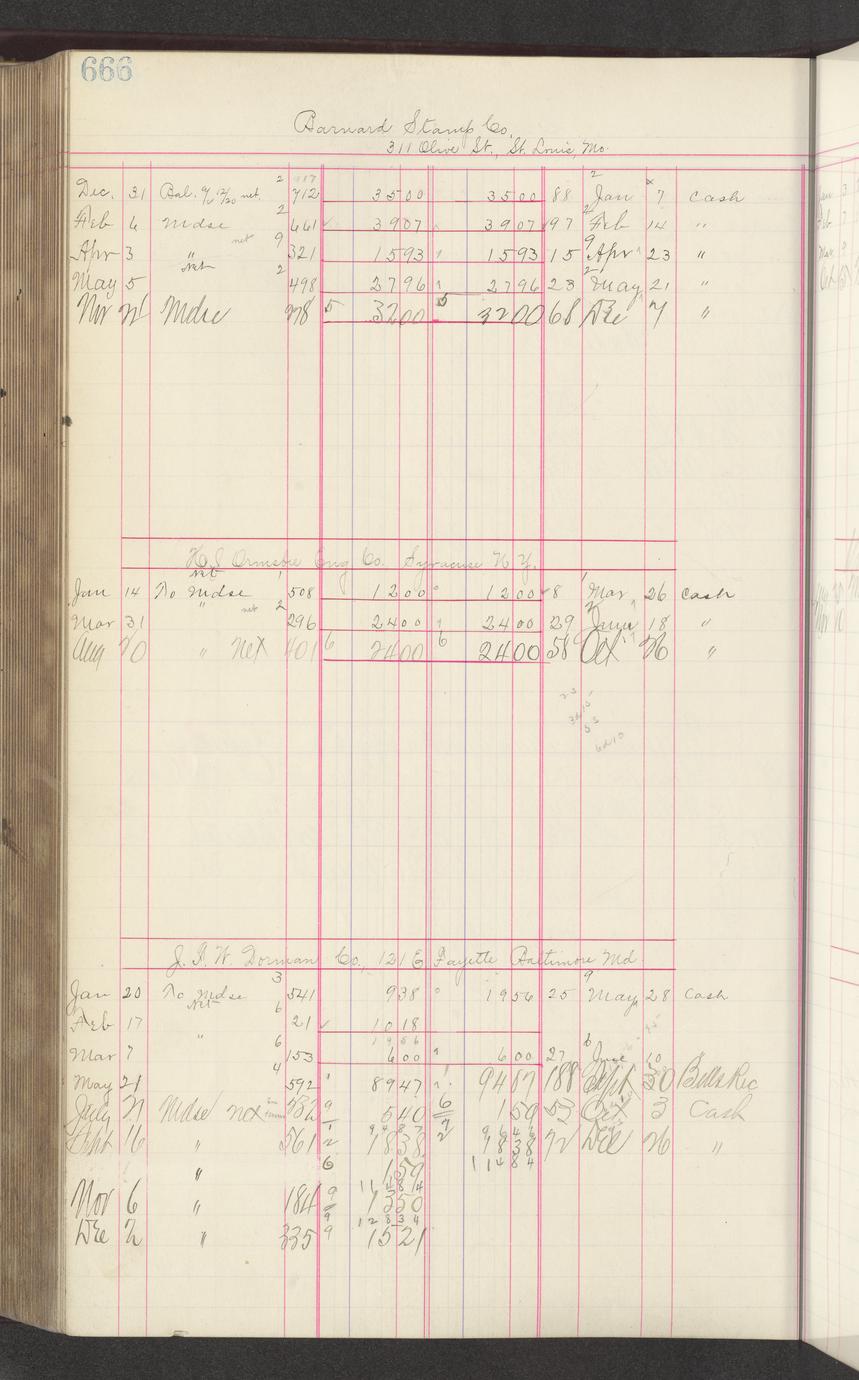 666
Barnard Stamp Co.
311 Olive St., St. Louis, Mo.
Dec. 31 Bal. net 712 3500 3500 88 Jan 7 Cash
Feb 6 Mdse 661 3907 3907 97 Feb 14 "
Apr 3 " net 321 1593 1593 15 Apr 23 "
May 5 " net 498 2796 2796 23 May 21 "
Nov 21 Mdse 278 5 3200 5 3200 68 Dec 7 "
H. S. Ormsbie Eng Co. Syracuse N. Y.
Jan 14 To Mdse net 508 1200 1200 8 Mar 26 Cash
Mar 31 " net 296 2400 2400 29 June 18 "
Aug 20 " net 401 6 2400 6 2400 58 Oct 26 "
J. F. W. Dorman Co., 121 E Fayette Baltimore Md
Jan 20 To Mdse 541 938 1956 25 May 28 Cash
Feb 17 " net 21 1018
1956
Mar 7 " 153 600 600 27 June 10
May 21 592 8947 9487 188 Sept 30 Bills Rec
July 21 Mdse net 532 9 540 6 150 53 Oct 3 Cash
9487 9646
Sept 16 " 561 1838 1838 72 Dec 26 "
" 6 159 11484
11484
Nov 6 " 184 9 1350
12834
Dec 2 " 335 9 1521